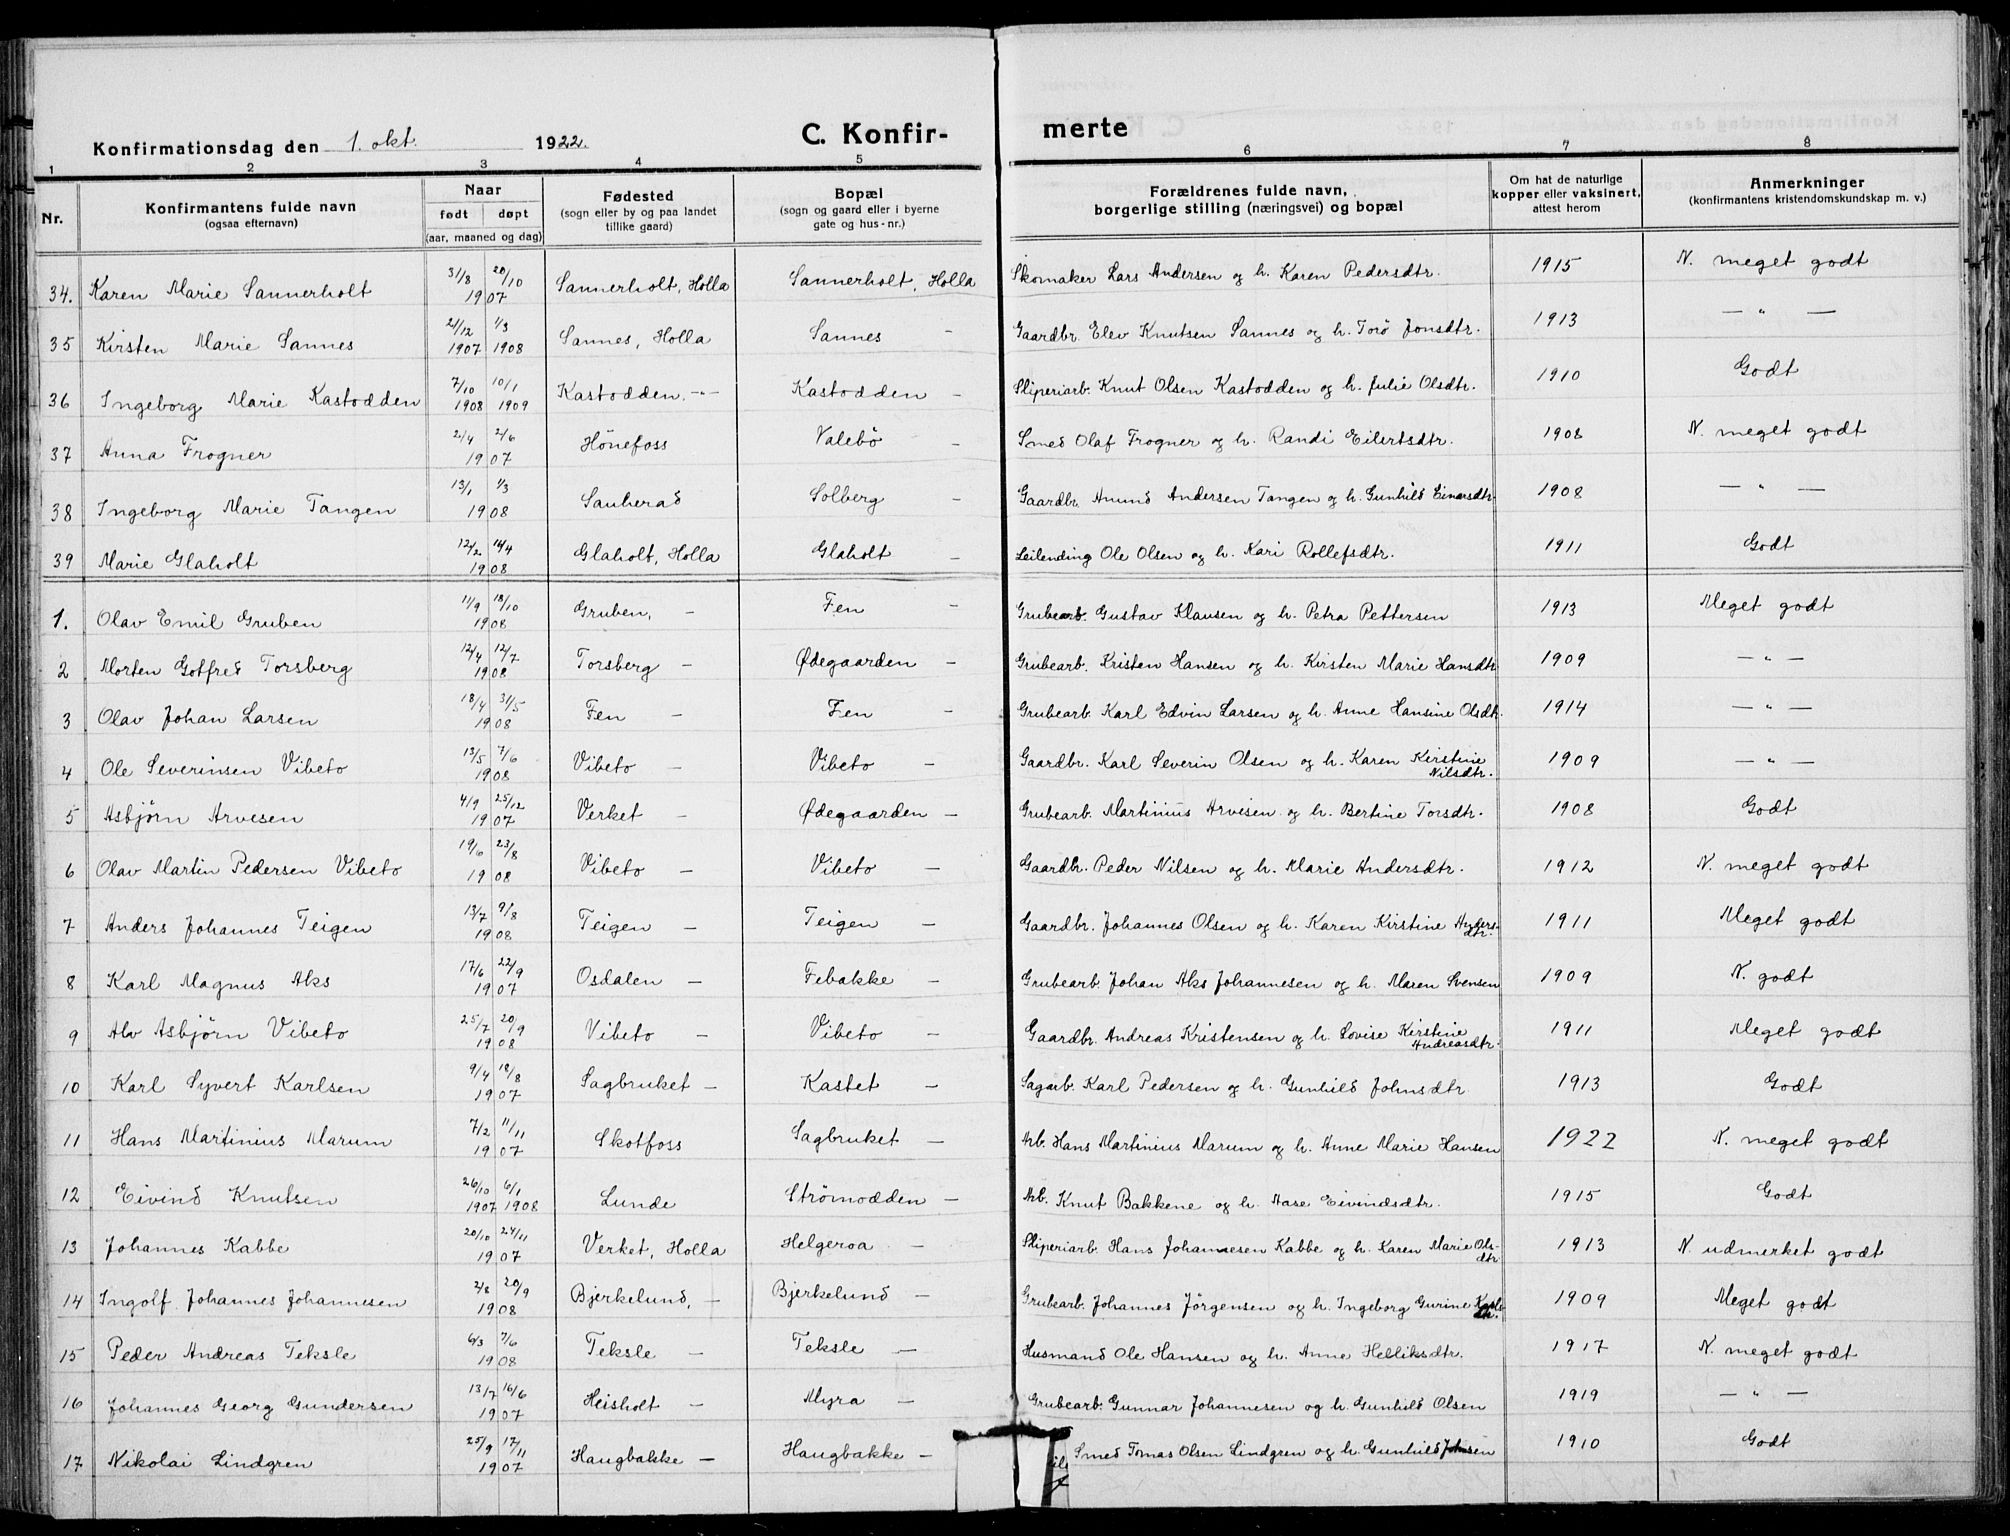 Konfirmationsdag den 1. okt. 1922. C. Konfir- merte
1 2 3 4 5 6 7 8
Nr. Konfirmantens fulde navn (ogsaa efternavn) Naar født døpt (aar, maaned og dag) Fødested (sogn eller by og paa landet tillike gaard) Bopæl (sogn og gaard eller i byerne gate og hus-nr.) Forældrenes fulde navn, borgerlige stilling (næringsvei) og bopæl Om hat de naturlige kopper eller vaksinert, attest herom Anmerkninger (konfirmantens kristendomskundskap m. v.)
34. Karen Marie Sannerholt 31/8 20/10 1907 Sannerholt, Holla Sannerholt, Holla Skomaker Lars Andersen og h. Karen Pedersdtr. 1915 N. meget godt
35 Kirsten Marie Sannes 21/12 1907 1/3 1908 Sannes, Holla Sannes - Gaardbr. Elev Knutsen Sannes og h. Torö Jonsdtr. 1913 — " —
36 Ingeborg Marie Kastodden 7/10 1908 10/1 1909 Kastodden, -"- Kastodden - Sliperiarb. Knut Olsen Kastodden og h. Julie Olsdtr. 1910 Godt
37 Anna Frogner 2/4 2/6 1907 Hönefoss Valebö - Smed Olaf Frogner og h. Randi Eilertsdtr. 1908 N. meget godt
38 Ingeborg Marie Tangen 13/1 1/3 1908 Sauherad Solberg - Gaardbr. Amund Andersen Tangen og h. Gunhild Einarsdtr. 1908 — " —
39 Marie Glaholt 12/2 14/4 1908 Glaholt, Holla Glaholt - Leilending Ole Olsen og h. Kari Rollefsdtr. 1911 Godt
1. Olav Emil Gruben 11/9 18/10 1908 Gruben, - Fen - Grubearb. Gustav Klausen og h. Petra Pettersen 1913 Meget godt
2 Morten Gotfred Torsberg 12/4 12/7 1908 Torsberg - Ødegaarden - Grubearb. Kristen Hansen og h. Kirsten Marie Hansdtr. 1909 — " —
3 Olav Johan Larsen 18/4 31/5 1908 Fen - Fen - Grubearb. Karl Edvin Larsen og h. Anne Hansine Olsdtr. 1914 — " —
4 Ole Severinsen Vibeto 13/5 7/6 1908 Vibeto - Vibeto - Gaardbr. Karl Severin Olsen og h. Karen Kirstine Nilsdtr. 1909 — " —
5 Asbjørn Arvesen 4/9 25/12 1907 Verket - Ødegaarden - Grubearb. Martinius Arvesen og h. Bertine Torsdtr. 1908 Godt
6 Olav Martin Pedersen Vibeto 19/6 23/8 1908 Vibeto - Vibeto - Gaardbr. Peder Nilsen og h. Marie Andersdtr. 1912 N. meget godt
7 Anders Johannes Teigen 13/7 9/8 1908 Teigen - Teigen - Gaardbr. Johannes Olsen og h. Karen Kirstine Andersdtr. 1911 Meget godt
8 Karl Magnus Aks 17/6 22/9 1907 Osdalen - Febakke - Grubearb. Johan Aks Johannesen og h. Maren Svensen 1909 N. godt
9 Alv Asbjörn Vibeto 25/7 20/9 1908 Vibeto - Vibeto - Gaardbr. Andreas Kristensen og h. Lovise Kirstine Andreasdtr. 1911 Meget godt
10 Karl Syvert Karlsen 9/4 18/8 1907 Sagbruket - Kastet - Sagarb. Karl Pedersen og h. Gunhild Johnsdtr 1913 Godt
11 Hans Martinius Marum 7/2 11/11 1907 Skotfoss Sagbruket - Arb. Hans Martinius Marum og h. Anne Marie Hansen 1922 N. meget godt
12 Eivind Knutsen 26/10 1907 6/1 1908 Lunde Strömodden - Arb. Knut Bakkene og h. Aase Eivindsdtr. 1915 Godt
13 Johannes Kabbe 20/10 24/11 1907 Verket, Holla Helgeroa - Sliperiarb. Hans Johannesen Kabbe og h. Karen Marie Olsdtr. 1913 N. udmerket godt
14 Ingolf Johannes Johannesen 2/8 20/9 1908 Bjerkelund, - Bjerkelund - Grubearb. Johannes Jörgensen og h. Ingeborg Gurine 1909 Meget godt
15 Peder Andreas Teksle 6/3 7/6 1908 Teksle - Teksle - Husmand Ole Hansen og h. Anne Helliksdtr. 1917 N. meget godt
16 Johannes Georg Gundersen 13/7 16/6 1907 Heisholt - Myra - Grubearb. Gunnar Johannesen og h. Gunhild Olsen 1919 — " —
17 Nikolai Lindgren 25/9 17/11 1907 Haugbakke - Haugbakke - Smed Tomas Olsen Lindgren og h. Gunhild Johnsen 1910 Godt